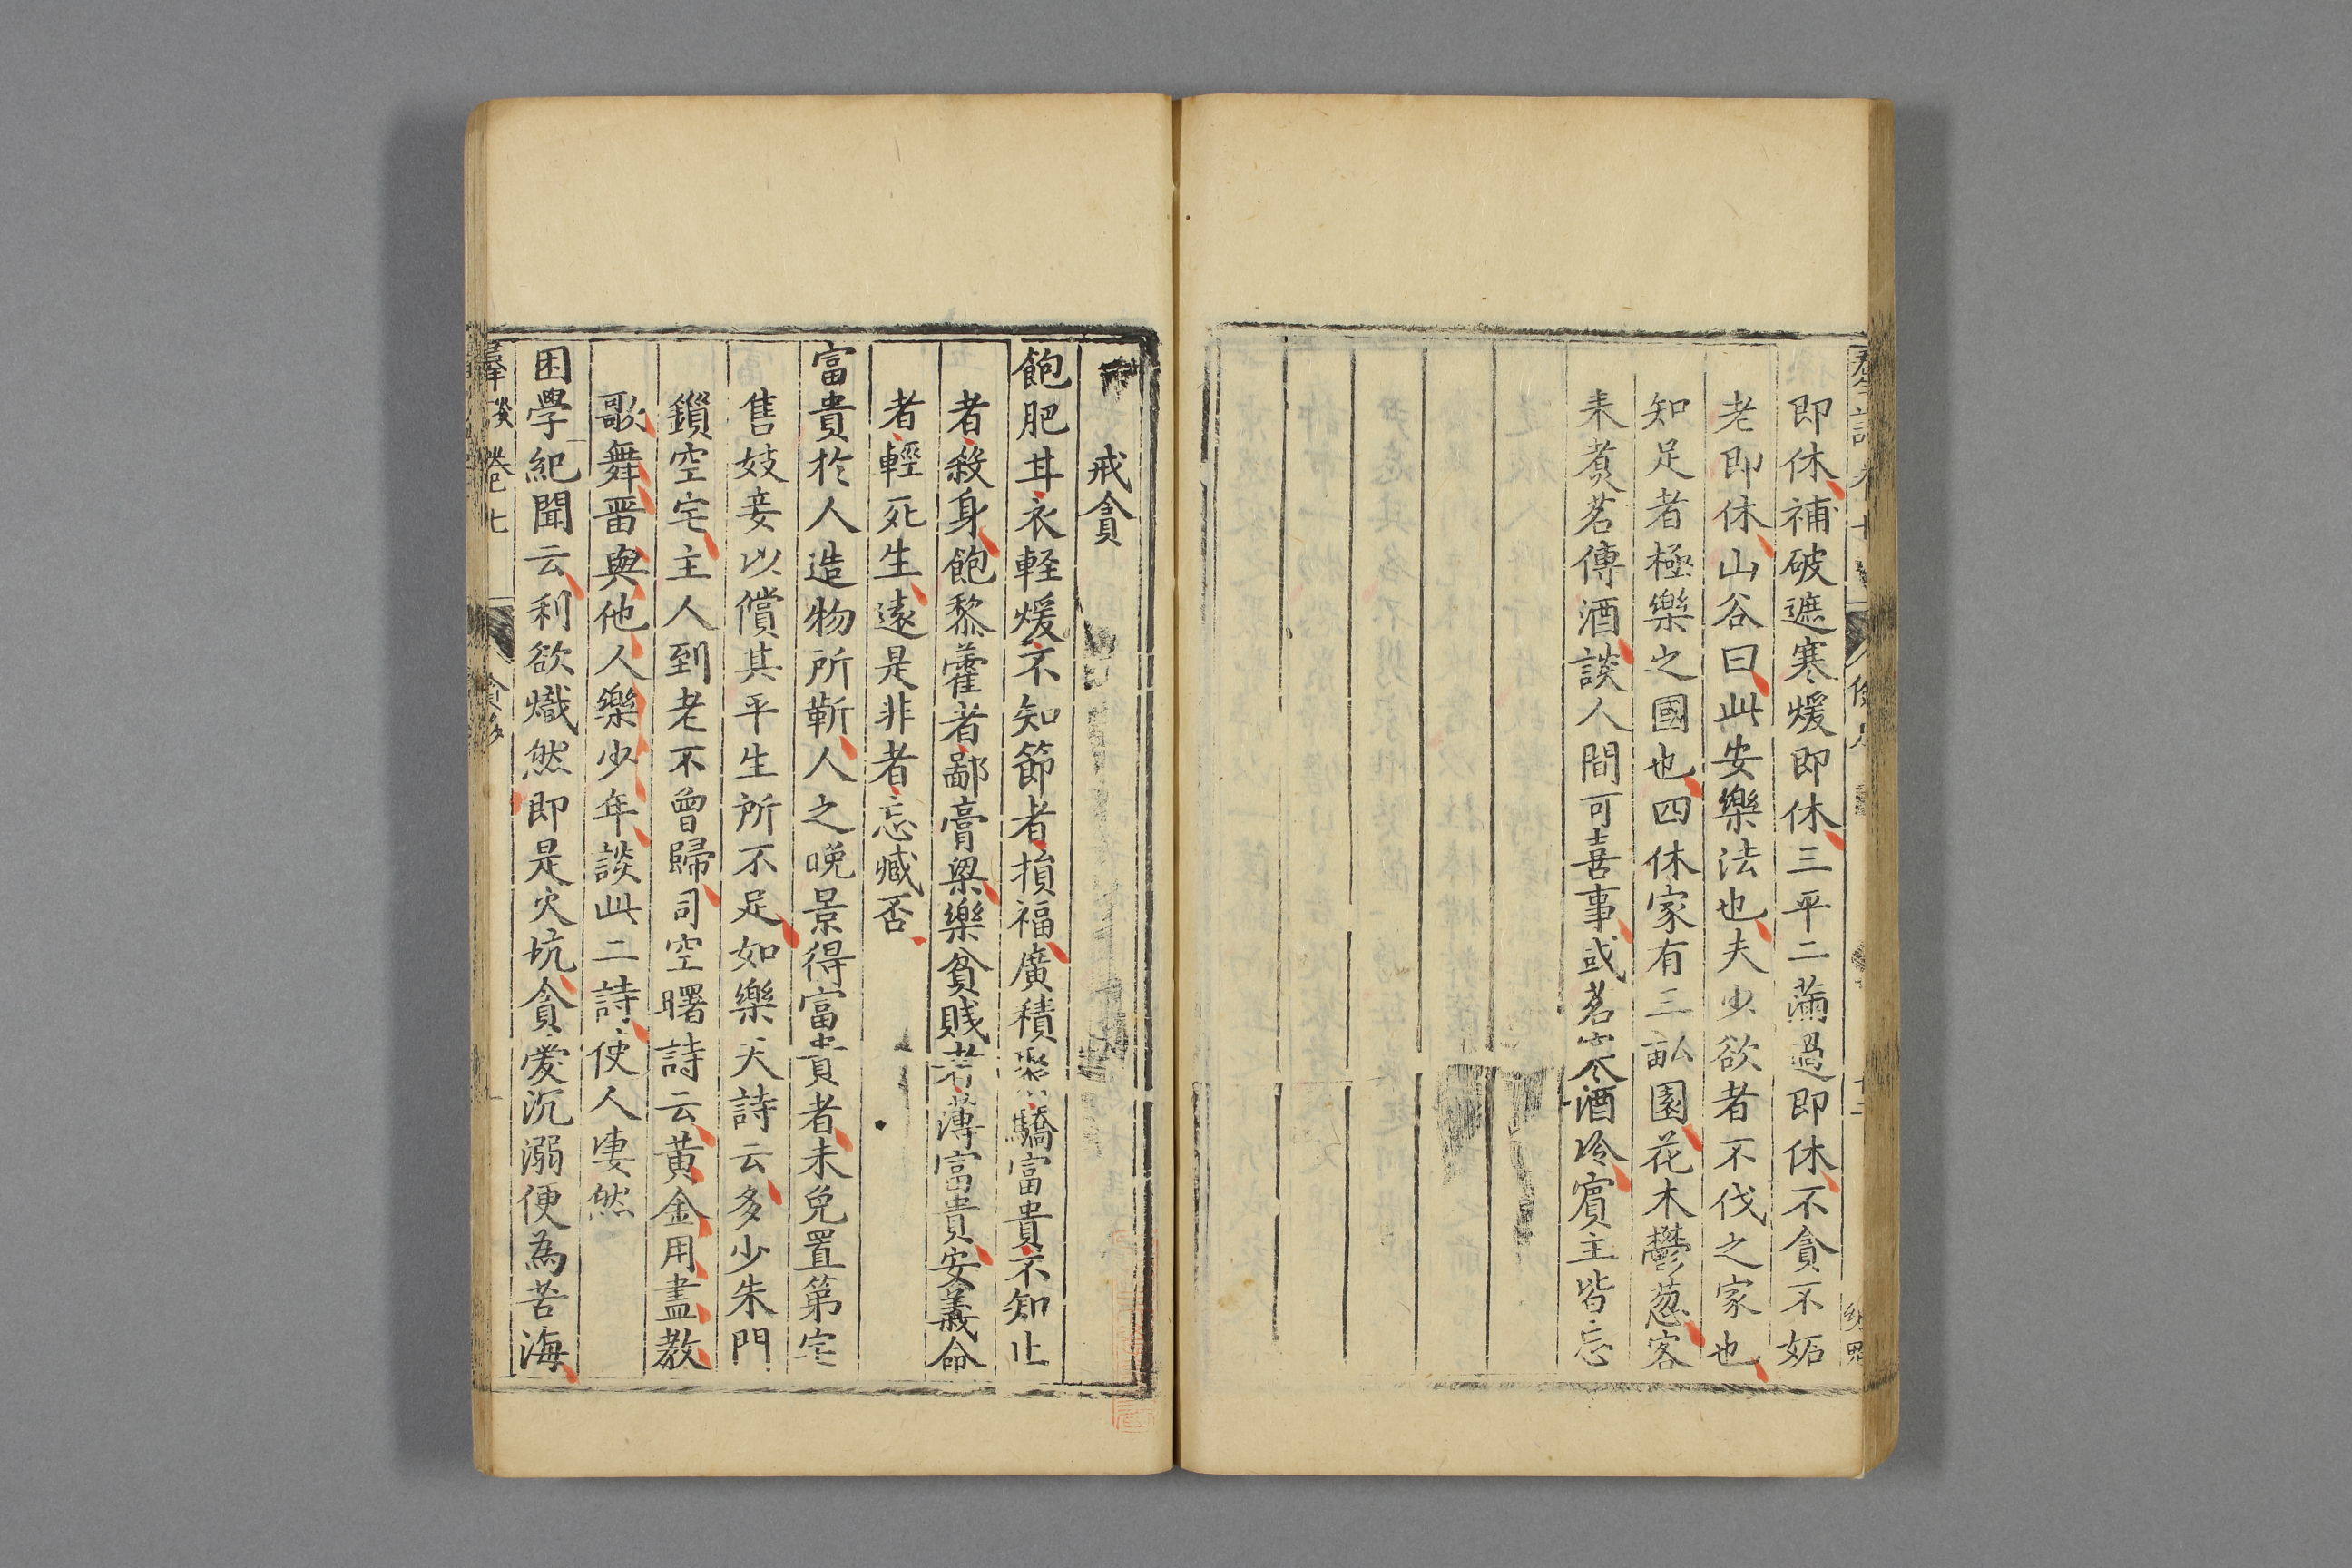 即休補破遮寒煖即休三平二滿過即休不貪不妬
老即休山谷曰此安樂法也夫少欲者不伐之家也
知足者極樂之國也四休家有三畝園花木鬱葱客
来煑茗傳酒談人間可喜事或茗寒酒冷賓主皆忘
戒貪
飽肥甘衣輕煖不知節者損福廣積聚驕富貴不知止
者殺身飽黎藿者鄙膏粱樂貧賤者薄富貴安義命
者輕死生遠是非者忘臧否
富貴於人造物所靳人之晚景得富貴者未免置第宅
售妓妾以償其平生所不足如樂天詩云多少朱門
鎖空宅主人到老不曾歸司空曙詩云黄金用盡教
歌舞畱與他人樂少年談此二詩使人悽然
困學紀聞云利欲熾然即是火坑貪愛沉溺便為苦海
卷七